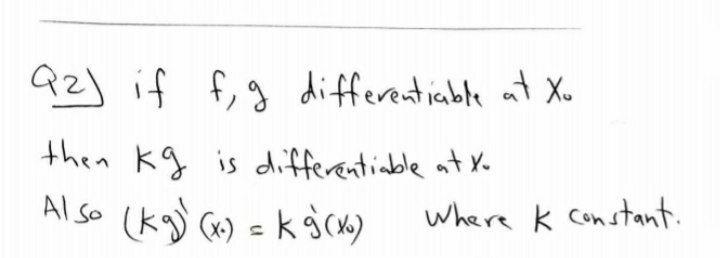 Q2) if f, g differentiable at x₀
then kg is differentiable at x₀
Also (kg)'(x₀) = k g'(x₀) where k constant.